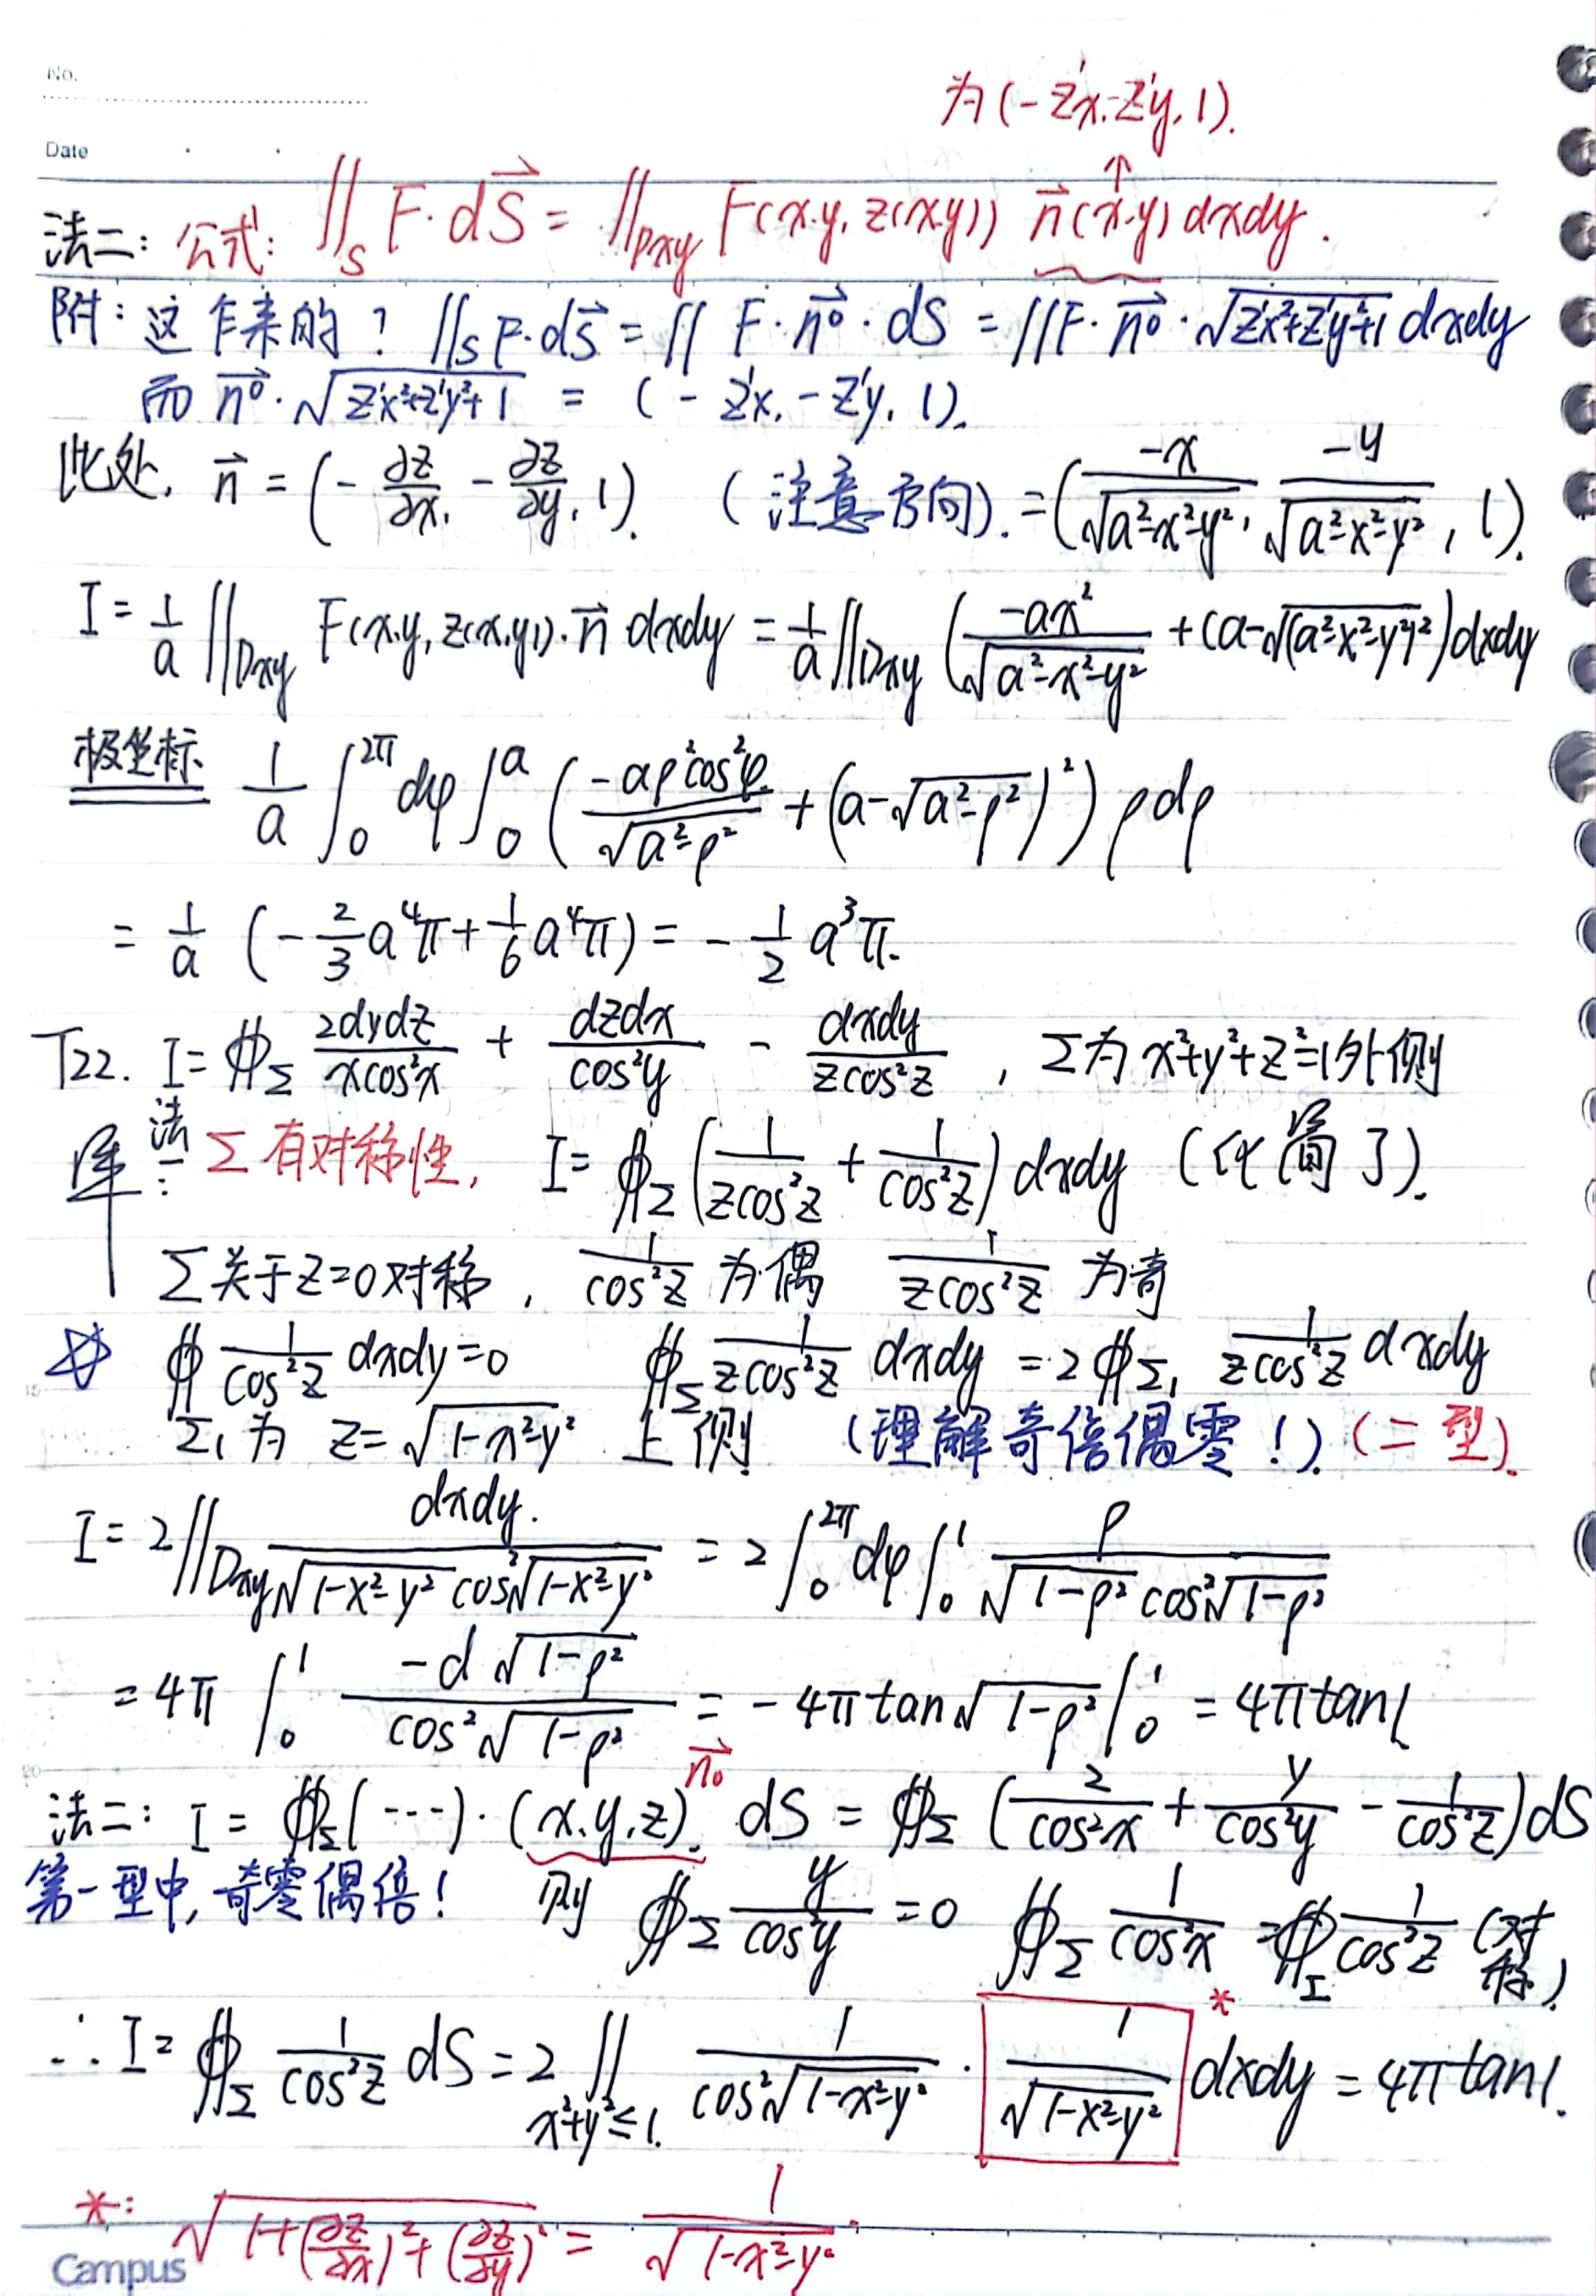 No.
为 (-z'x, -z'y, 1).
Date
↑
法二: 公式: ∬_S F·dS⃗ = ∬_Dxy F(x,y, z(x,y)) n⃗(x,y) dxdy.
附: 这乍来的? ∬_S F·dS⃗ = ∬ F·n⃗⁰·dS = ∬F·n⃗⁰·√(z'x²+z'y²+1) dxdy
而 n⃗⁰·√(z'x²+z'y²+1) = (-z'x, -z'y, 1).
此处, n⃗ = (-∂z/∂x, -∂z/∂y, 1). (注意方向). = (-x/√(a²-x²-y²), -y/√(a²-x²-y²), 1).
I = 1/a ∬_Dxy F(x,y, z(x,y))·n⃗ dxdy = 1/a ∬_Dxy (-ax²/√(a²-x²-y²) + (a-√(a²-x²-y²)²) dxdy
极坐标 1/a ∫_0^2π dφ ∫_0^a (-aρ²cos²φ/√(a²-ρ²) + (a-√(a²-ρ²))²) ρdρ
= 1/a (-2/3 a⁴π + 1/6 a⁴π) = -1/2 a³π.
T22. I = ∯_Σ 2dydz/(xcos²x) + dzdx/cos²y - dxdy/(zcos²z), Σ为 x²+y²+z²=1外侧
解 法一: Σ有对称性, I = ∯_Σ (1/(zcos²z) + 1/cos²z) dxdy (化简了).
Σ关于z=0对称, 1/cos²z 为偶 1/(zcos²z) 为奇
☆ ∯ 1/cos²z dxdy=0 ∯_Σ 1/(zcos²z) dxdy = 2∯_Σ₁ 1/(zcos²z) dxdy
Σ₁为 z=√(1-x²-y²) 上侧 (理解奇倍偶零!). (二型).
I = 2∬_Dxy dxdy./(√(1-x²-y²) cos²√(1-x²-y²)) = 2∫_0^2π dφ ∫_0^1 ρ/(√(1-ρ²) cos²√(1-ρ²))
= 4π ∫_0^1 -d√(1-ρ²)/cos²√(1-ρ²) = -4π tan√(1-ρ²) |_0^1 = 4πtan1
n⃗₀
法二: I = ∯_Σ(⋯)·(x,y,z). dS = ∯_Σ (2/cos²x + y/cos²y - 1/cos²z) dS
第一型中, 奇零偶倍! 则 ∯_Σ y/cos²y = 0 ∯_Σ 1/cos²x = ∯_Σ 1/cos²z (对称)
∴ I = ∯_Σ 1/cos²z dS = 2 ∬_{x²+y²≤1.} 1/cos²√(1-x²-y²) · 1/√(1-x²-y²) * dxdy = 4πtan1.
*: √(1+(∂z/∂x)²+(∂z/∂y)²) = 1/√(1-x²-y²).
Campus